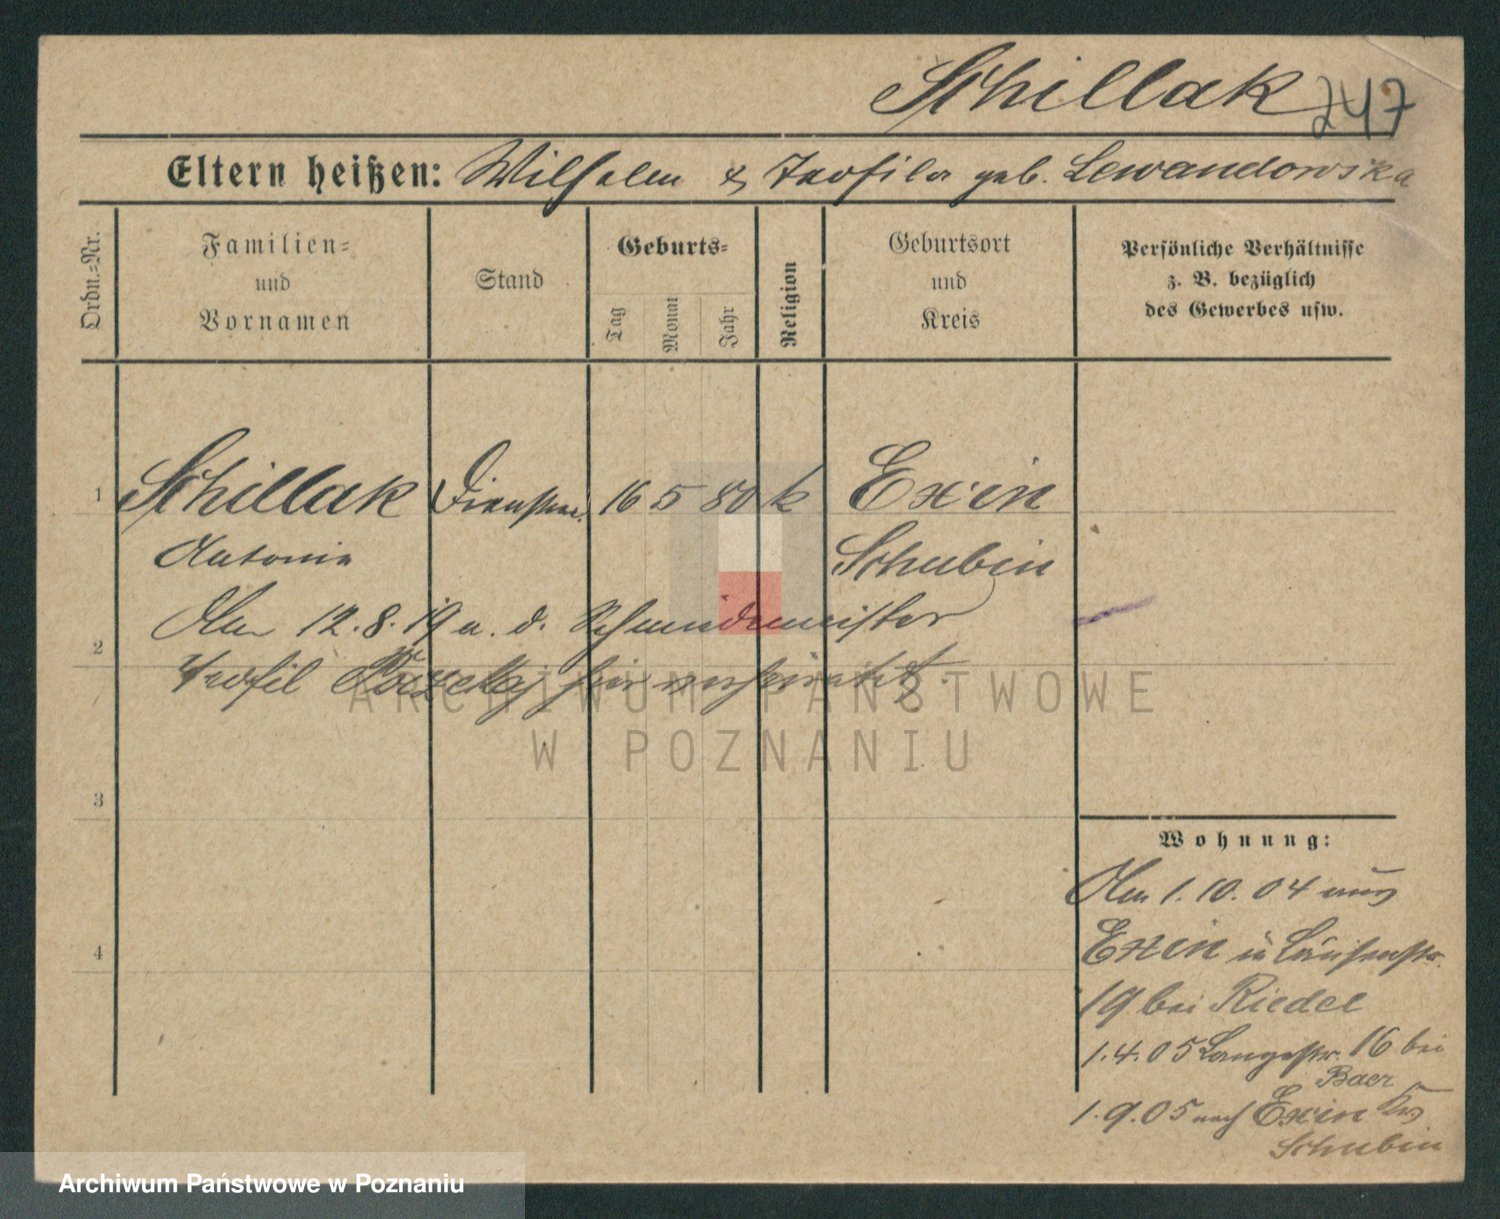 Schillak 247
Eltern heißen: Wilhelm & Teofila geb. Lewandowska
Ordn.=Nr.
Familien=
und
Vornamen
Stand
Geburts=
Tag
Monat
Jahr
Religion
Geburtsort
und
Kreis
Persönliche Verhältnisse
z. B. bezüglich
des Gewerbes usw.
1 Schillak 16 5 80 k Exin
Antonie Schubin
Am 12.8.19 a. d. Schmidemeister
2
Teofil hier verheiratet.
3
4
Wohnung:
Am 1.10.04 aus
Exin in
19 bei Riedel
1.4.05 Langestr. 16 bei
Baer
1.9.05 nach Exin Krs
Schubin
ARCHIWUM PAŃSTWOWE
W POZNANIU
Archiwum Państwowe w Poznaniu